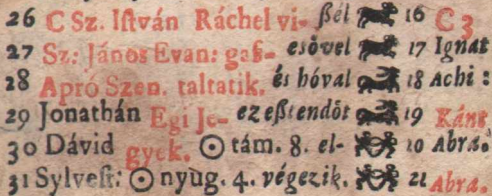 26 C Sz. Iſtván Ráchel vi- ßél 16 C 3
27 Sz: János Evan: gaſ- esövel 17 Ignát
28 Apró Szen. taltatik. és hóval 18 Achi:
29 Jonathán Egi Je- ez eßtendöt 19
30 Dávid gyek. ☉ tám. 8. el- 10 Abra.
31 Sylveſt: ☉ nyug. 4. végezik. 21 Abra.